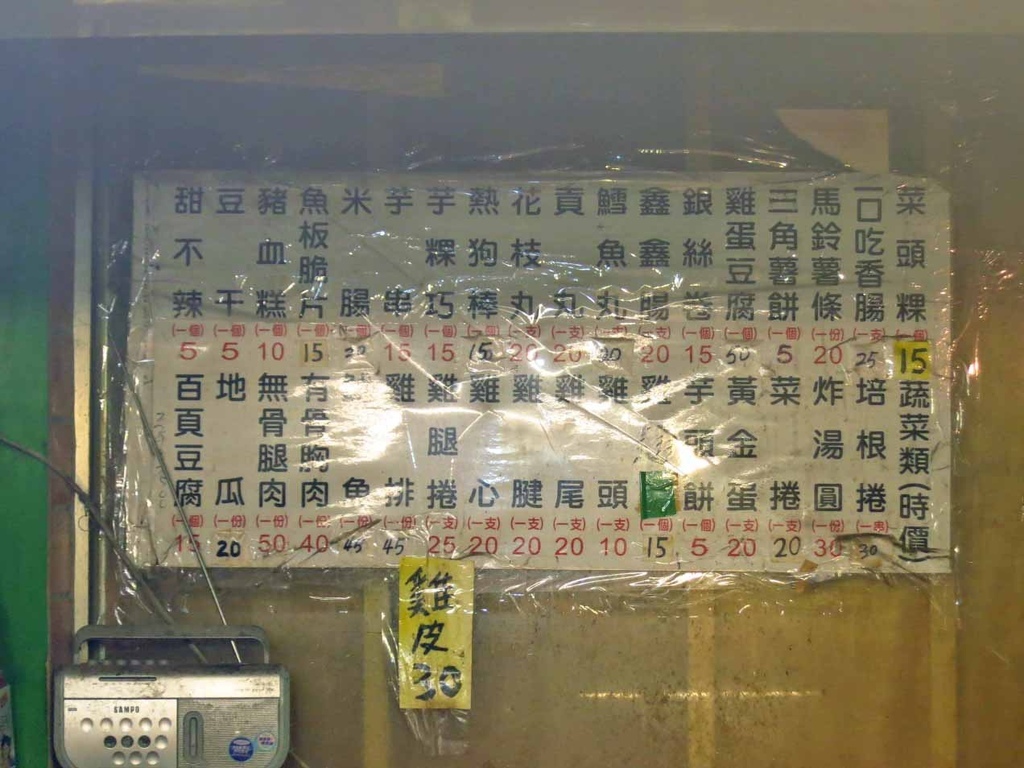 菜頭粿(一個)15
一口吃香腸(一支)25
馬鈴薯條(一份)20
三角薯餅(一個)5
雞蛋豆腐(一個)
銀絲卷(一個)15
鑫鑫腸(一支)20
鱈魚丸(一支)
貢丸(一支)20
花枝丸(一支)20
熱狗棒(一支)15
芋粿巧(一個)15
芋串(一個)15
米腸(一個)
魚板脆片(一個)15
豬血糕(一個)10
豆干(一個)5
甜不辣(一個)5
蔬菜類(時價)
培根捲 30
炸湯圓(一份)30
菜捲(一個)20
黃金蛋(一支)20
芋頭餅(一個)5
雞(一個)15
雞頭(一支)10
雞尾(一支)20
雞腱(一支)20
雞心(一支)20
雞腿捲(一支)25
雞排(一份)45
魚(一份)45
有骨胸肉(一份)40
無骨腿肉(一份)50
地瓜(一份)20
百頁豆腐(一份)15
雞皮
30
SAMPO